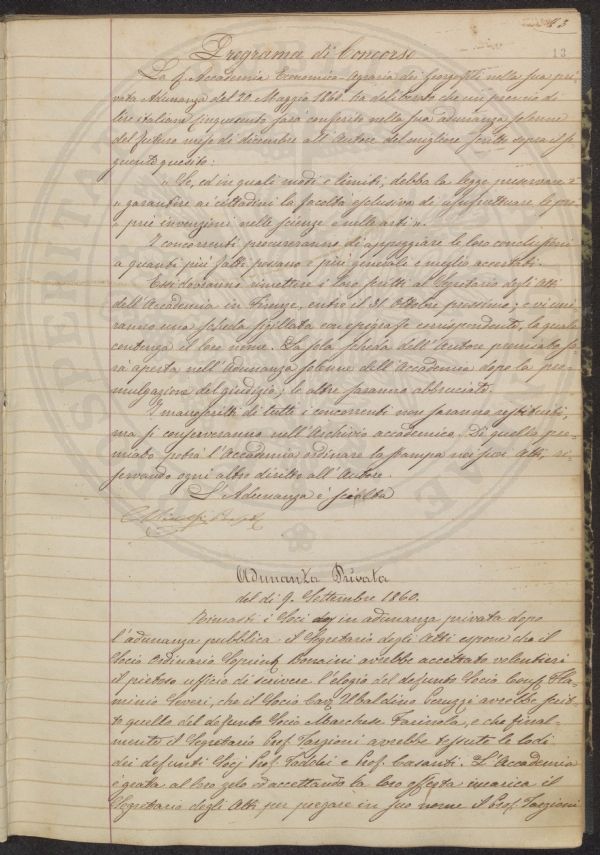 13
Programa di Concorso
La R. Accademia Economico-Agraria dei Georgofili nella sua pri-
vata Adunanza del 20 Maggio 1860. ha deliberato che un premio di
lire italiane cinquecento sarà conferito nella sua adunanza solenne
del futuro mese di dicembre all'Autore del migliore scritto sopra il se-
guente quesito:
" Se, ed in quali modi e limiti, debba la legge preservare e
" garantire ai cittadini la facoltà esclusiva di usufruttuare le pro-
" prie invenzioni nelle scienze e nelle arti ".
I concorrenti procureranno di appoggiare le loro conclusioni
a quanti più fatti possano e più generali e meglio accertati.
Essi dovranno rimettere i loro scritti al Segretario degli Atti
dell'Accademia in Firenze, entro il 31 Ottobre prossimo; e vi uni-
ranno una scheda sigillata con epigrafe corrispondente, la quale
contenga il loro nome. La sola scheda dell'Autore premiato sa-
rà aperta nell'Adunanza solenne dell'Accademia dopo la pro-
mulgazione del giudizio; le altre saranno abbruciate.
I manoscritti di tutti i concorrenti non saranno restituiti,
ma si conserveranno nell'Archivio accademico. Di quello pre-
miato potrà l'Accademia ordinare la stampa nei suoi Atti, ri-
servando ogni altro diritto all'Autore.
L'Adunanza è sciolta
Adunanza Privata
del dì 9. Settembre 1860.
Rimasti i Soci in adunanza privata dopo
l'adunanza pubblica il Segretario degli Atti espone che il
Socio Ordinario Bonaini avrebbe accettato volentieri
il pietoso ufficio di scrivere l'elogio del defunto Socio Fla-
minio Severi, che il Socio Cav Ubaldino Peruzzi avrebbe scrit-
to quello del defunto Socio Marchese Farinola, e che final-
mente il Segretario Prof. Targioni avrebbe tessute le lodi
dei defunti Socj Prof. Taddei e Prof. Casanti. L'Accademia
è grata al loro zelo ed accettando la loro offerta incarica il
Segretario degli Atti per pregare in suo nome il Prof. Targioni